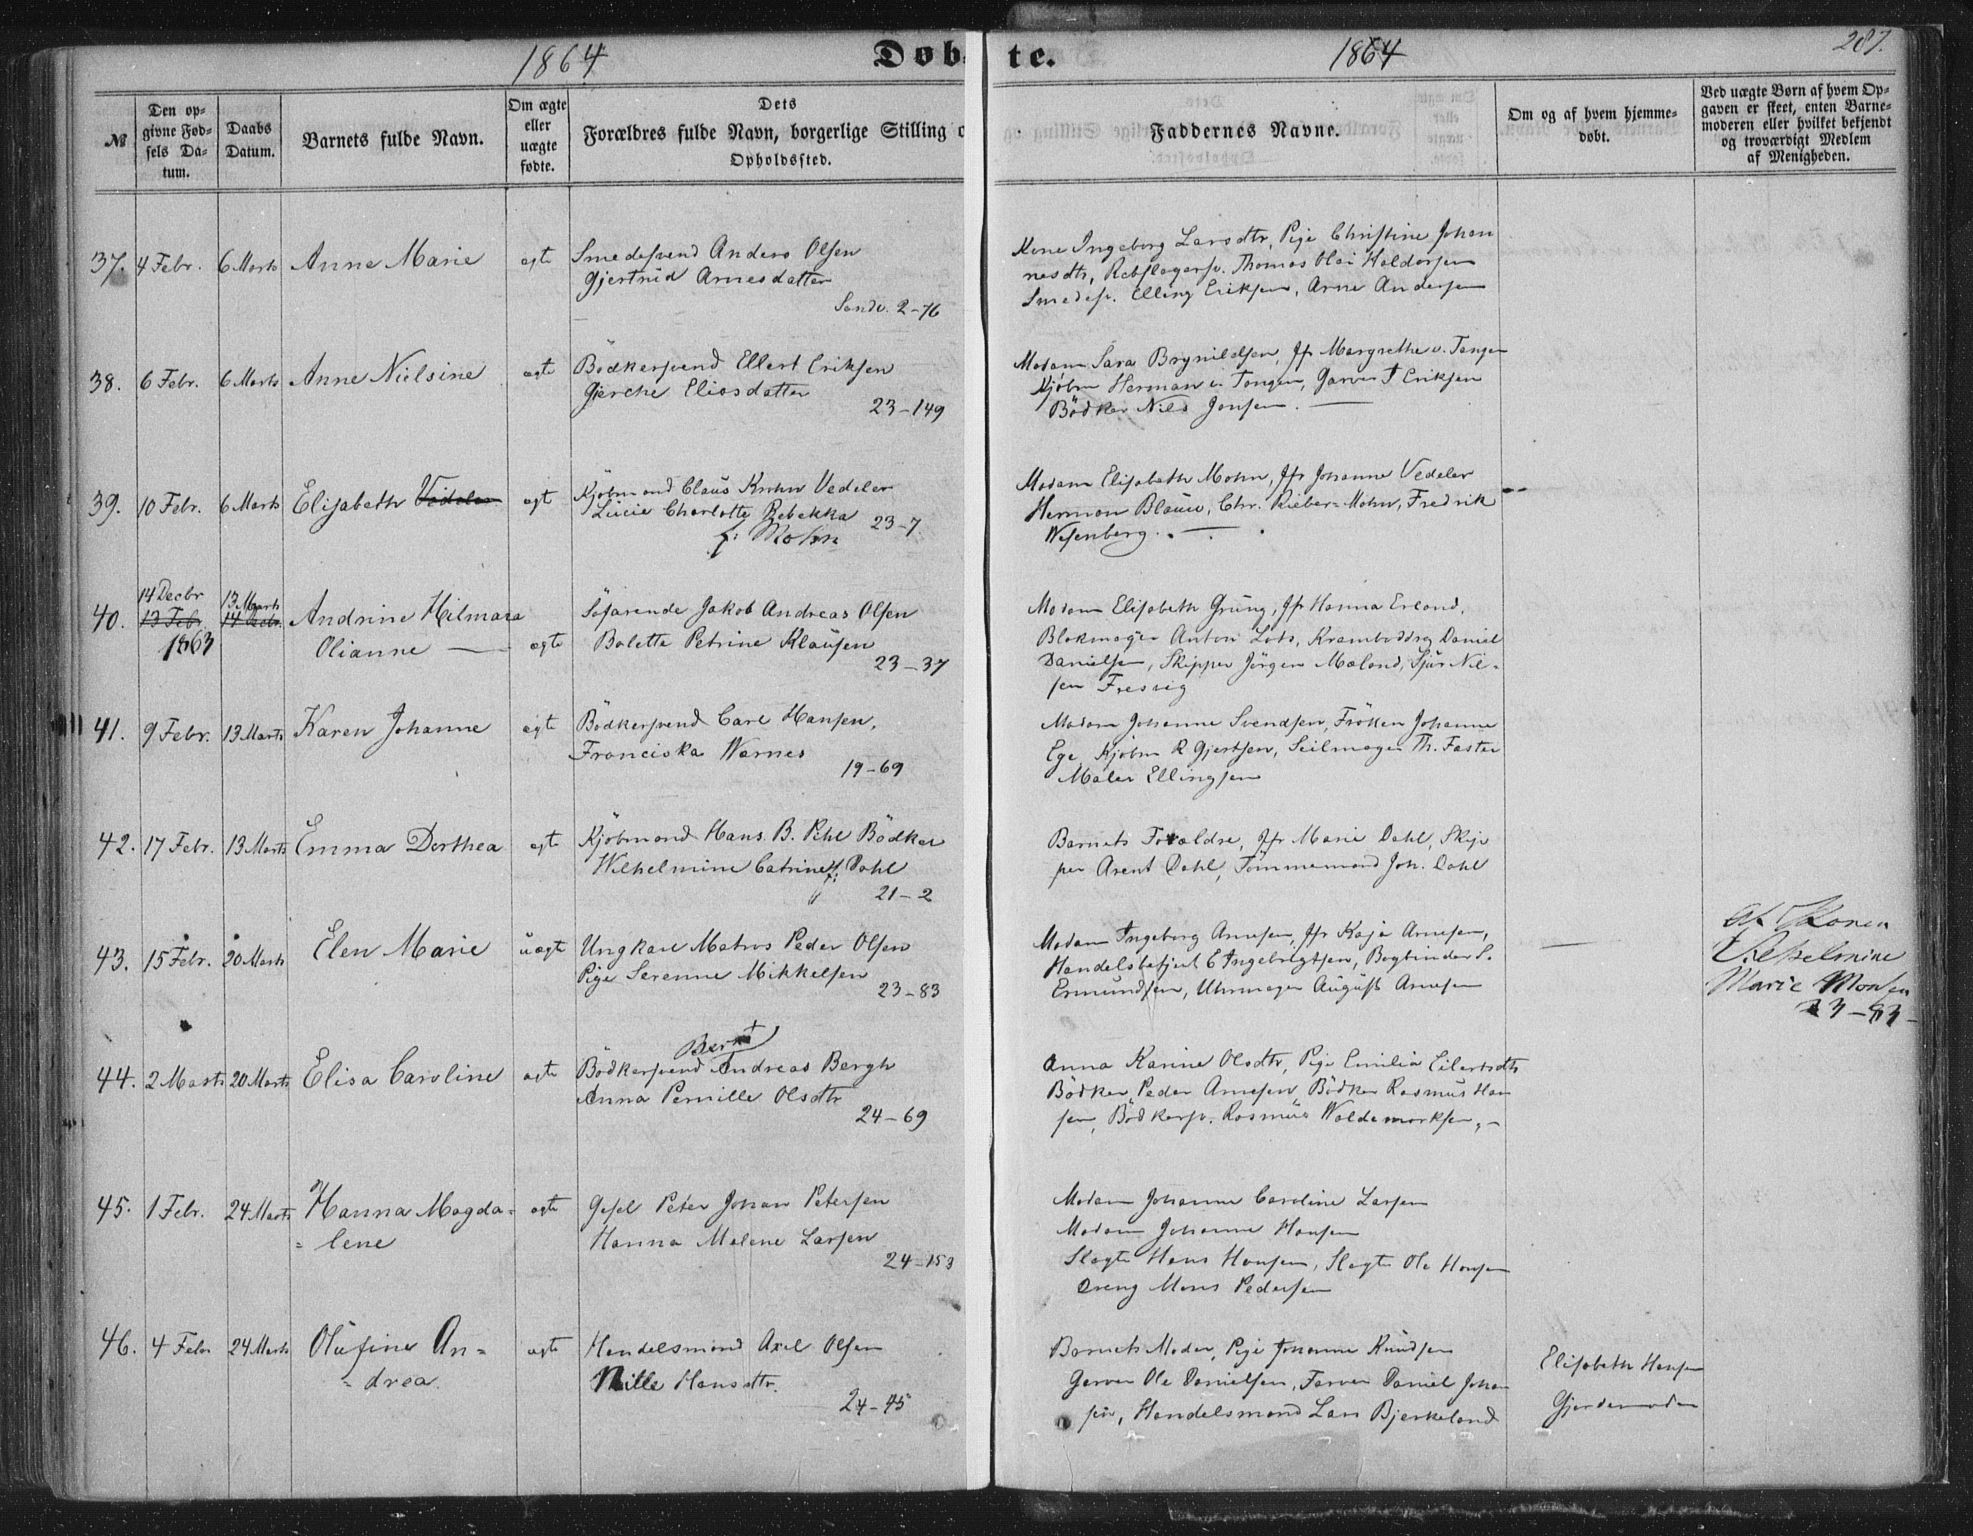 1864 Døb- te. 1864 287.
№
Den op-
givne Fød-
sels Da-
tum.
Daabs
Datum.
Barnets fulde Navn.
Om ægte
eller
uægte
fødte.
Dets
Forældres fulde Navn, borgerlige Stilling o
Opholdssted.
Faddernes Navne.
Om og af hvem hjemme-
døbt.
Ved uægte Børn af hvem Op-
gaven er skeet, enten Barne-
moderen eller hvilket bekjendt
og troværdigt Medlem
af Menigheden.
37. 4 Febr. 6 Marts Anne Marie egte
Smedesvend Anders Olsen
Gjertrud Arnesdatter
Sandv. 2-76
Kone Ingeborg Larsdtr, Pige Christine Johan
nesdtr, Rebslagersv. Thomas Olai Haldorsen
Smedesv. Elling Eriksen, Arne Andersen
38. 6 Febr. 6 Marts Anne Nielsine egte
Bödkersvend Ellert Eriksen
Gjerche Eliasdatter
23-149
Madam Sara Brynildsen, Jfr Margrethe v. Tangen
Kjøbm Herman v. Tangen, Garver T Eriksen
Bödker Nils Jonsen.
39. 10 Febr. 6 Marts Elisabeth Vedeler egt
Kjöbmand Claus Krohn Vedeler
Lucie Charlotte Rebekka
f: Mohn 23-7
Madam Elisabeth Mohn, Jfr Johanne Vedeler
Herman Blauw, Chr. Rieber-Mohn, Fredrik
Wesenberg.
40. 14 Decbr 13 Marts
13 Febr 14 Decbr. Andrine Hilmara
1863 Olianne egte
Söfarende Jakob Andreas Olsen
Bolette Petrine Klausen
23-37
Madam Elisabeth Grung, Jfr Hanna Erland,
Blokmager Anton Lots, Kramboddrg Daniel
Danielsen, Skipper Jörgen Maland, Sjur Nil-
sen Fresvig
41. 9 Febr. 13 Marts Karen Johanne egte
Bödkersvend Carl Hansen,
Franciska Warnes
19-69
Madam Johanne Svendsen, Fröken Johanne
Ege, Kjøbm R Gjertsen, Seilmager Th. Faster
Maler Ellingsen
42. 17 Febr. 13 Marts Emma Dorthea egte
Kjöbmand Hans. B. Pihl Bödker
Wilhelmine Catrine f: Dahl
21-2
Barnets Forældre, Jfr Marie Dahl, Skip
per Arent Dahl, Tömmermand Joh. Dahl
43. 15 Febr. 20 Marts Elen Marie uægt
Ungkarl Matros Peder Olsen
Pige Serenne Mikkelsen
23-83
Madam Ingeborg Arnesen, Jfr Kaja Arnesen,
Handelsbetjent C Ingebrigtsen, Bogbinder S.
Ermundsen, Uhrmager August Arnesen
Af Konen
Vilhelmine
Marie Monsen
23-83-
44. 2 Marts 20 Marts Elisa Caroline egte
Bernt
Bödkersvend Andreas Bergh
Anna Pernille Olsdtr
24-69
Anna Karine Olsdtr, Pige Emilia Eilertsdtr
Bödker Peder Arnesen, Bödker Rasmus Han
sen, Bödkersv. Rasmus Woldemarksen.-
45. 1 Febr. 24 Marts Hanna Magda-
-lene egte
Gesel Peter Johan Petersen
Hanna Malene Larsen
24-153
Madam Johanne Caroline Larsen
Madam Johanne Hansen
Slagter Hans Hansen, Slagter Ole Hansen
Dreng Mons Pedersen
46. 4 Febr 24 Marts Olufine An-
-drea. egte
Handelsmand Axel Olsen
Nille Hansdtr.
24-45
Barnets Moder, Pige Johanne Knudsen
Garver Ole Danielsen, Farver Daniel Johan
sen, Handelsmand Lars Bjerkeland
Elisabeth Hansen
Gjordemoder